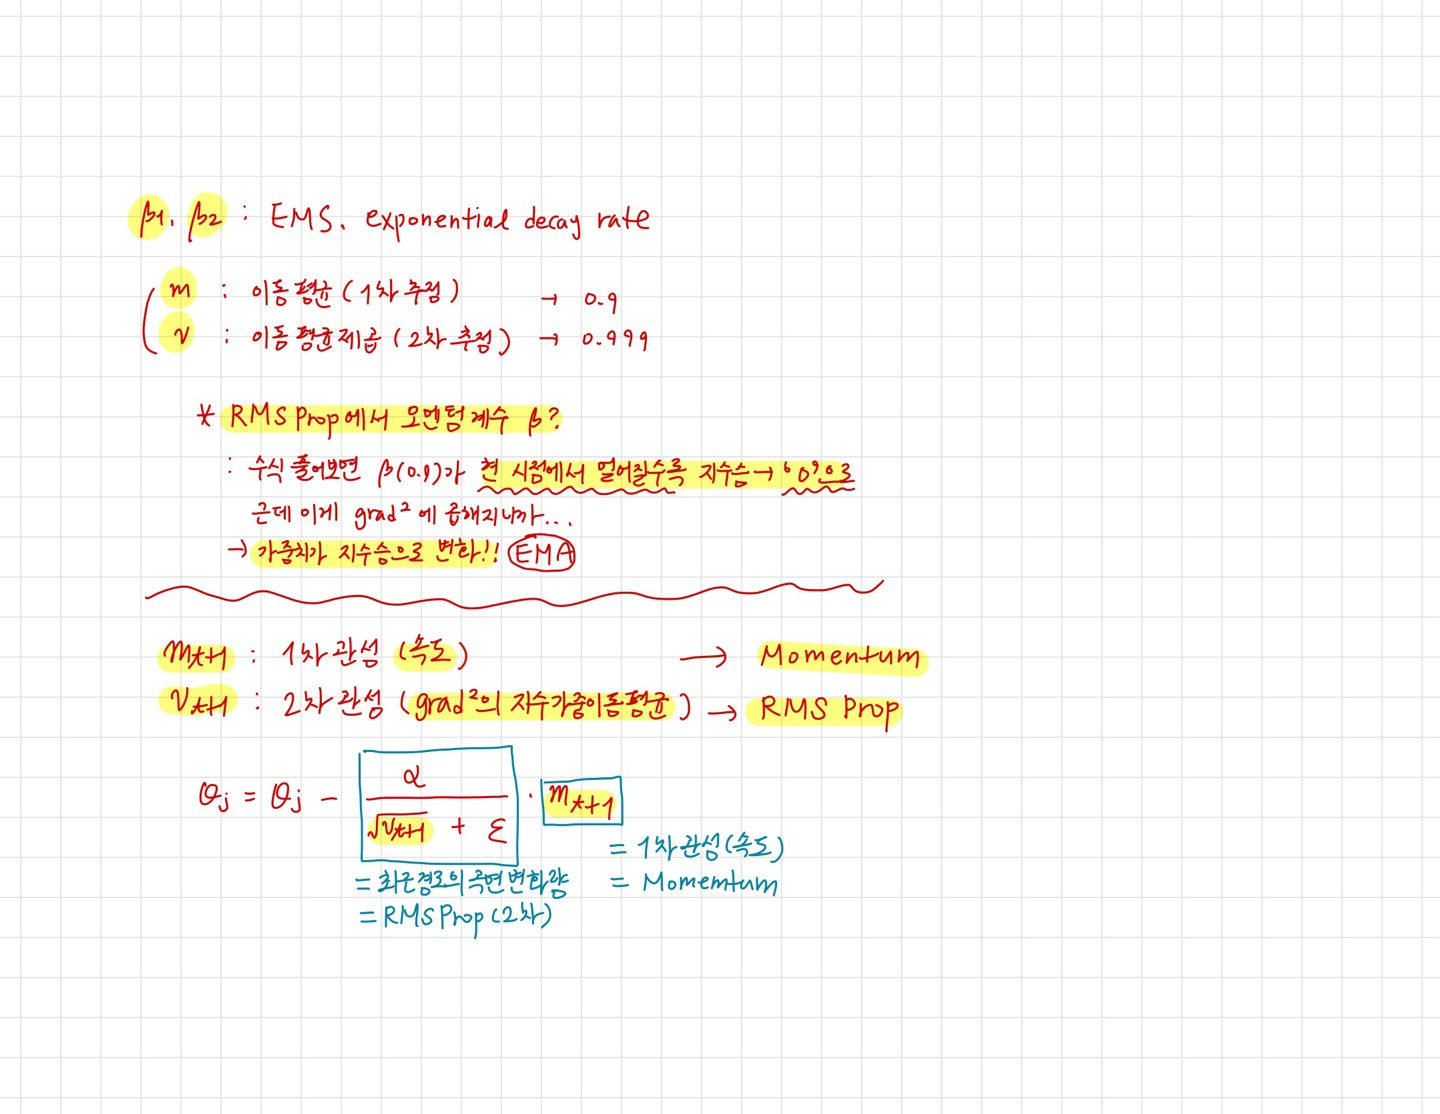 β1, β2 : EMS, exponential decay rate
m : 이동평균 (1차 추정) → 0.9
v : 이동평균제곱 (2차 추정) → 0.999
* RMS Prop에서 모멘텀계수 β?
: 수식 풀어보면 β(0.9)가 현 시점에서 멀어질수록 지수승 → '0'으로
근데 이게 grad² 에 곱해지니까...
→ 가중치가 지수승으로 변화!! EMA
m_t+1 : 1차 관성 (속도) → Momentum
v_t+1 : 2차 관성 (grad²의 지수가중이동평균) → RMS Prop
θj = θj - α / (√v_t+1 + ε) · m_t+1
= 1차 관성 (속도)
= 최근경로의 곡면변화량 = Momemtum
= RMS Prop (2차)